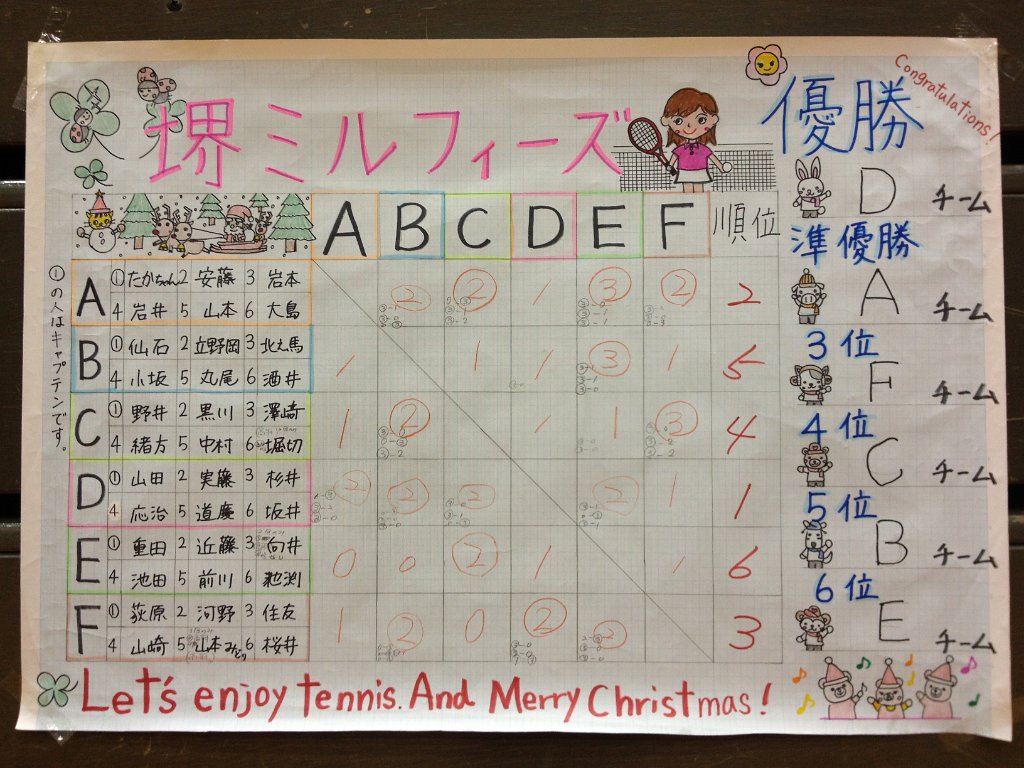 堺ミルフィーズ
A B C D E F 順位
A ①たかちゃん 2 安藤 3 岩本
4 岩井 5 山本 6 大島
② ② 1 ③ ② 2
B ① 仙石 2 立野岡 3
4 小坂 5 丸尾 6 酒井
1 1 1 ③ 1 5
C ① 野井 2 黒川 3 澤崎
4 緒方 5 中村 6 堀切
1 ② 1 1 ③ 4
D ① 山田 2 実藤 3 杉井
4 応治 5 道慶 6 坂井
② ② ② ② 1 1
E ① 重田 2 近藤 3 向井
4 池田 5 前川 6
0 0 ② 1 1 6
F ① 荻原 2 河野 3 住友
4 山崎 5 山本みどり 6 桜井
1 ② 0 ② ② 3
①の人はキャプテンです。
Let's enjoy tennis. And Merry Christmas!
Congratulations!
優勝
D チーム
準優勝
A チーム
3位
F チーム
4位
C チーム
5位
B チーム
6位
E チーム